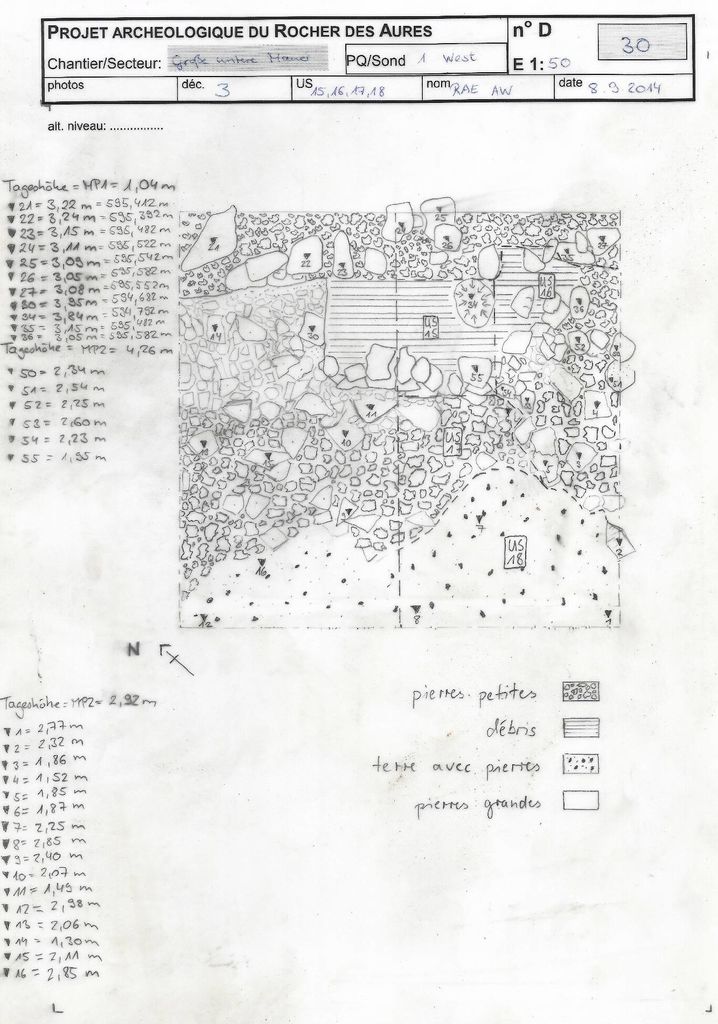 PROJET ARCHEOLOGIQUE DU ROCHER DES AURES
n° D 30
Chantier/Secteur: Große untere Mauer
PQ/Sond 1 West
E 1:50
photos
déc. 3
US 15,16,17,18
nom RAE AW
date 8.9.2014
alt. niveau: ................
Tageshöhe = MP1 = 1,04 m
21 = 3,22 m = 595,412 m
22 = 3,24 m = 595,392 m
23 = 3,15 m = 595,482 m
24 = 3,11 m = 595,522 m
25 = 3,09 m = 595,542 m
26 = 3,05 m = 595,582 m
27 = 3,08 m = 595,552 m
30 = 3,95 m = 594,682 m
34 = 3,84 m = 594,792 m
35 = 3,15 m = 595,482 m
36 = 3,05 m = 595,582 m
Tageshöhe = MP2 = 4,26 m
50 = 2,34 m
51 = 2,54 m
52 = 2,25 m
53 = 2,60 m
54 = 2,23 m
55 = 1,95 m
21
22
23
24
25
26
34
35
36
US 16
US 15
14
30
52
51
55
54
11
10
US 17
4
3
5
13
15
9
7
US 18
2
16
12
8
1
N
Tageshöhe = MP2 = 2,92 m
1 = 2,77 m
2 = 2,32 m
3 = 1,86 m
4 = 1,52 m
5 = 1,85 m
6 = 1,87 m
7 = 2,25 m
8 = 2,85 m
9 = 2,40 m
10 = 2,07 m
11 = 1,49 m
12 = 2,98 m
13 = 2,06 m
14 = 1,30 m
15 = 2,11 m
16 = 2,85 m
pierres petites
débris
terre avec pierres
pierres grandes